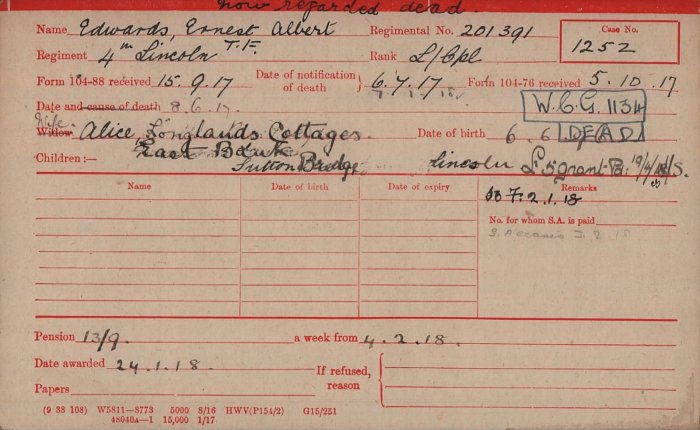 now regarded dead.
Name Edwards, Ernest Albert Regimental No. 201391 Case No.
Regiment 4th Lincoln T.F. Rank L/Cpl 1252
Form 104-88 received 15.9.17 Date of notification of death 6.7.17 Form 104-76 received 5.10.17
W.C.G. 1134
Date and cause of death 8.6.17.
Wife
Widow Alice, Longlands Cottages. Date of birth 6.6 DEAD
East Bank
Children :— Sutton Bridge Lincoln £5 grant
Name Date of birth Date of expiry Remarks
2.1.18
No. for whom S.A. is paid
S.A. ceases 3.2.18
Pension 13/9. a week from 4.2.18.
Date awarded 24.1.18. If refused,
Papers reason
(9 38 108) W5811—8773 5000 8/16 HWV(P154/2) G15/251
48040a—1 15,000 1/17